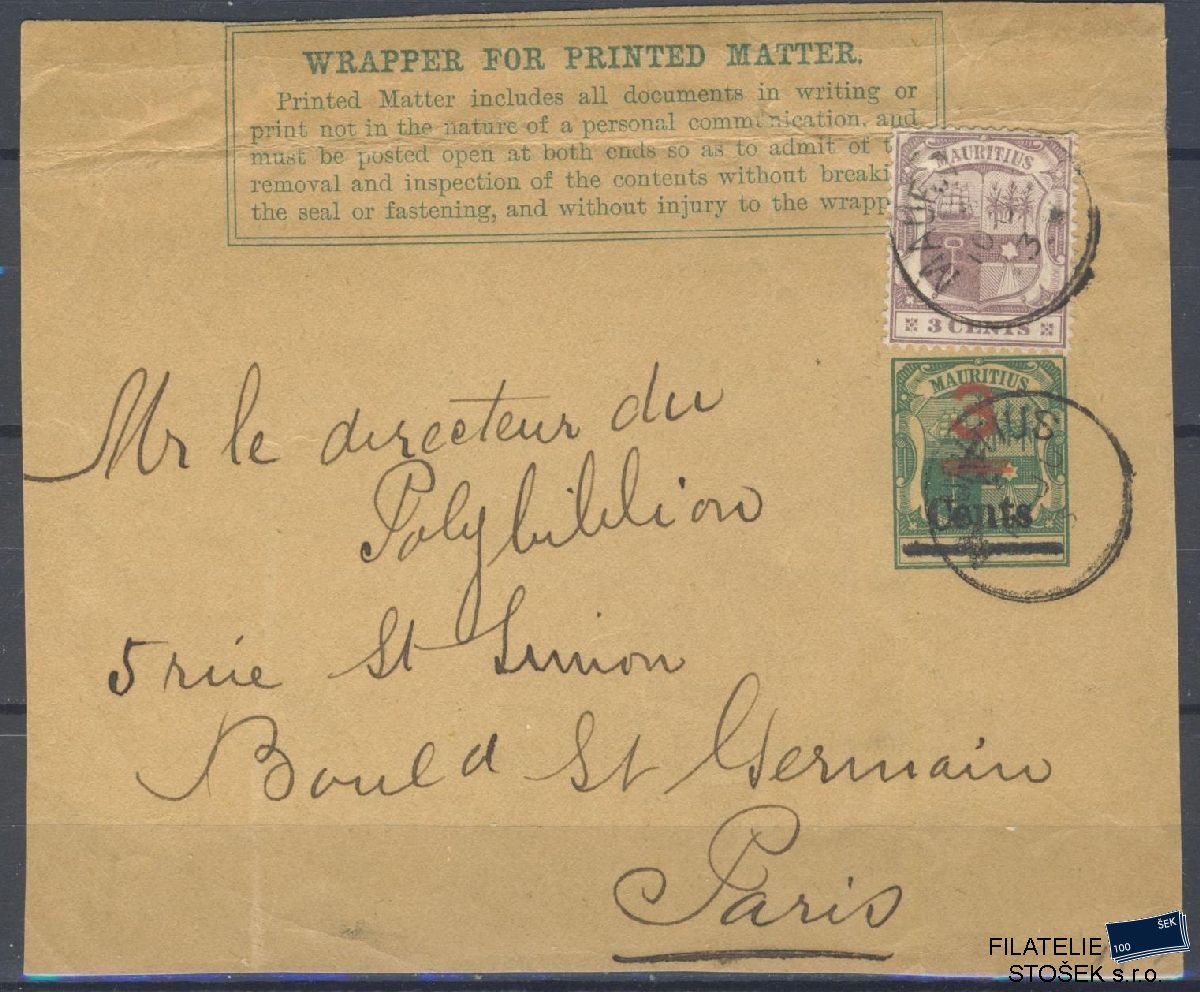 WRAPPER FOR PRINTED MATTER.
Printed Matter includes all documents in writing or
print not in the nature of a personal communication, and
must be posted open at both ends so as to admit of
removal and inspection of the contents without breaki
the seal or fastening, and without injury to the wrapp
MAURITIUS
3 CENTS
MAURITIUS
3
Cents
Mr le directeur du
Polybiblion
5 rue St Simon
Bould St Germain
Paris
FILATELIE
STOŠEK s.r.o.
100 ŠEK